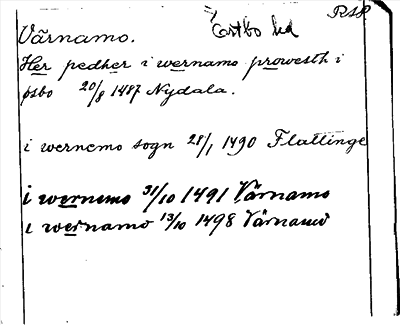 RAP
Värnamo. Östbo hd
Her pedher i wernamo prowesth i
østbo 20/8 1487 Nydala.
i wernemo sogn 28/1 1490 Flattinge
i wernemo 31/10 1491 Värnamo
i wernamo 13/10 1498 Värnamo